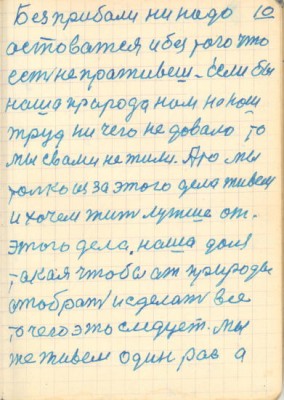 10
Без прибали ни надо
остоватся и без того что
ест не праживеш. Если бы
наша природа нам на наш
труд ни чего не довало то
мы свами не жили. Аро мы
толко из за этого дела живем
и хочем жит лутше от.
этого дела. наша доля
такая чтобы ат природы
отобрат и сделат все
то чего это следует. мы
же живем один раз а